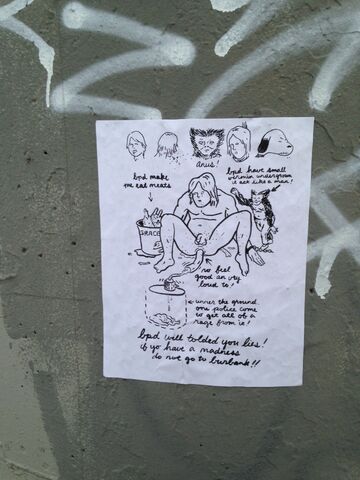 anus!
bpd make
me eal meats
bpd have small
vermin undergrown
it act like a man!
GRACE
no feel
good an vry
loud to!
unner the ground
one police come
to get all of a
rage from ie!
bpd will tolded you lies!
if yo have a madness
do not go to burbank!!